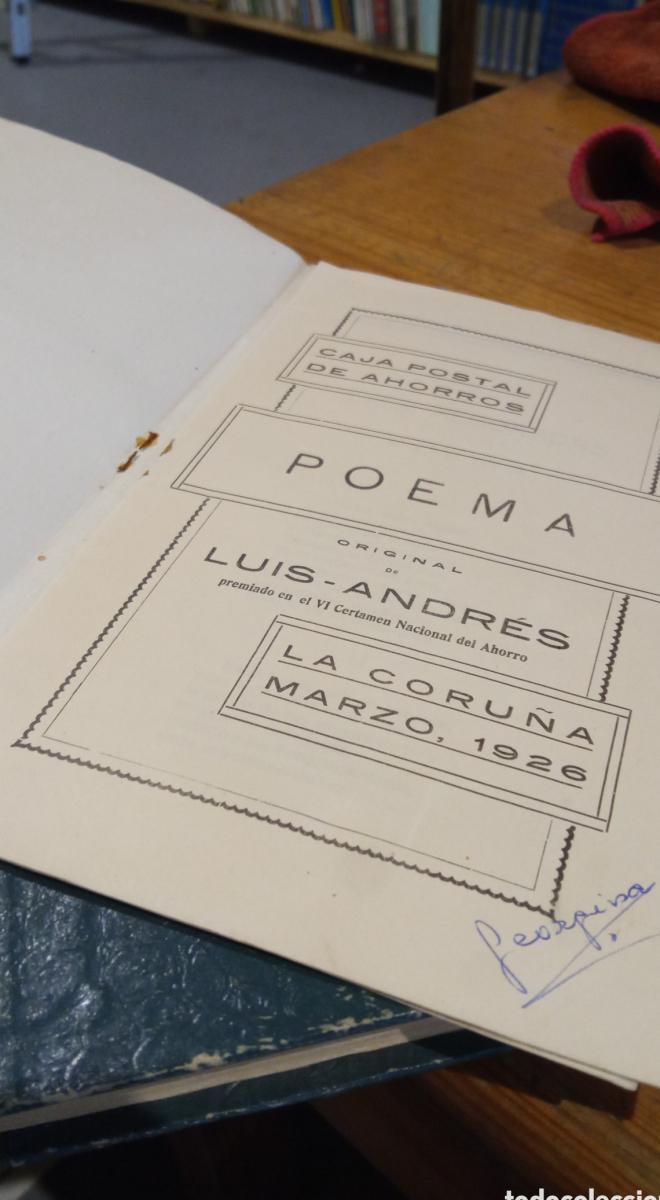 CAJA POSTAL
DE AHORROS
POEMA
ORIGINAL
DE
LUIS-ANDRÉS
premiado en el VI Certamen Nacional del Ahorro
LA CORUÑA
MARZO, 1926
Georgina
todocoleccio